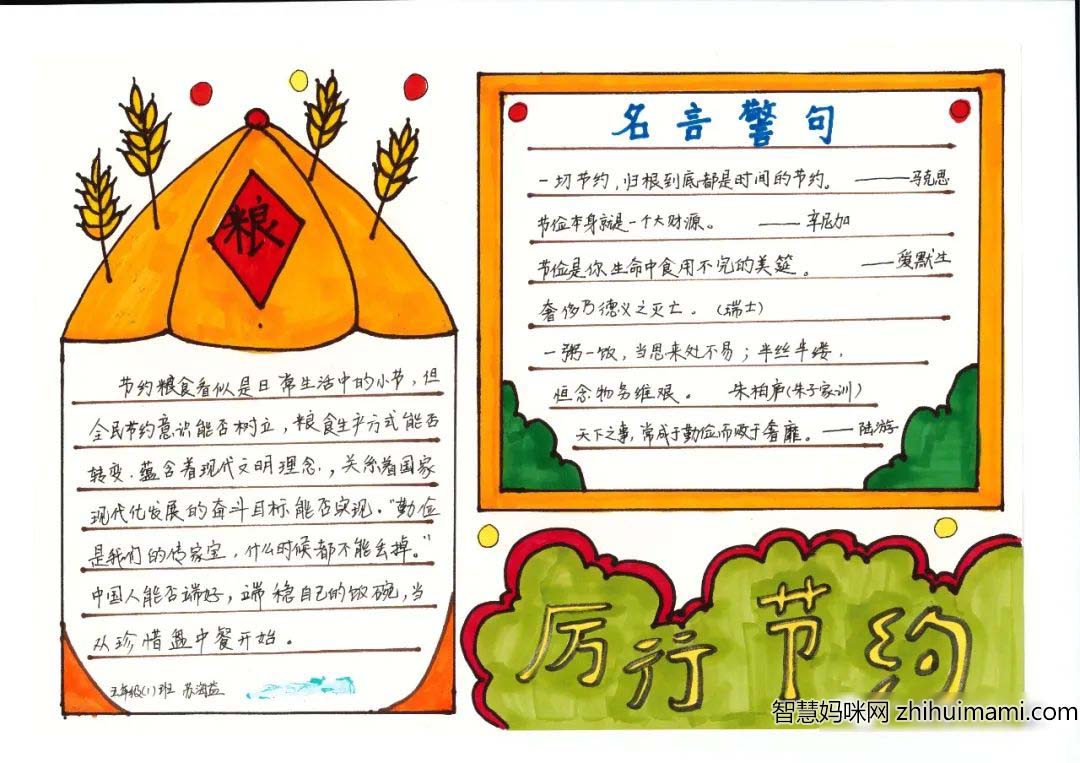 粮
节约粮食看似是日常生活中的小节,但
全民节约意识能否树立,粮食生产方式能否
转变.蕴含着现代文明理念.,关系着国家
现代化发展的奋斗目标能否实现。"勤俭
是我们的传家宝,什么时候都不能丢掉。"
中国人能否端好,端稳自己的饭碗,当
从珍惜盘中餐开始。
五年级(1)班
名言警句
一切节约,归根到底都是时间的节约。 ——马克思
节俭本身就是一个大财源。 ——辛尼加
节俭是你生命中食用不完的美筵。 ——爱默生
奢侈乃德义之灭亡。(瑞士)
一粥一饭,当思来处不易;半丝半缕,
恒念物力维艰。 朱柏庐(朱子家训)
天下之事,常成于勤俭而败于奢靡。——陆游
厉行节约
智慧妈咪网 zhihuimami.com